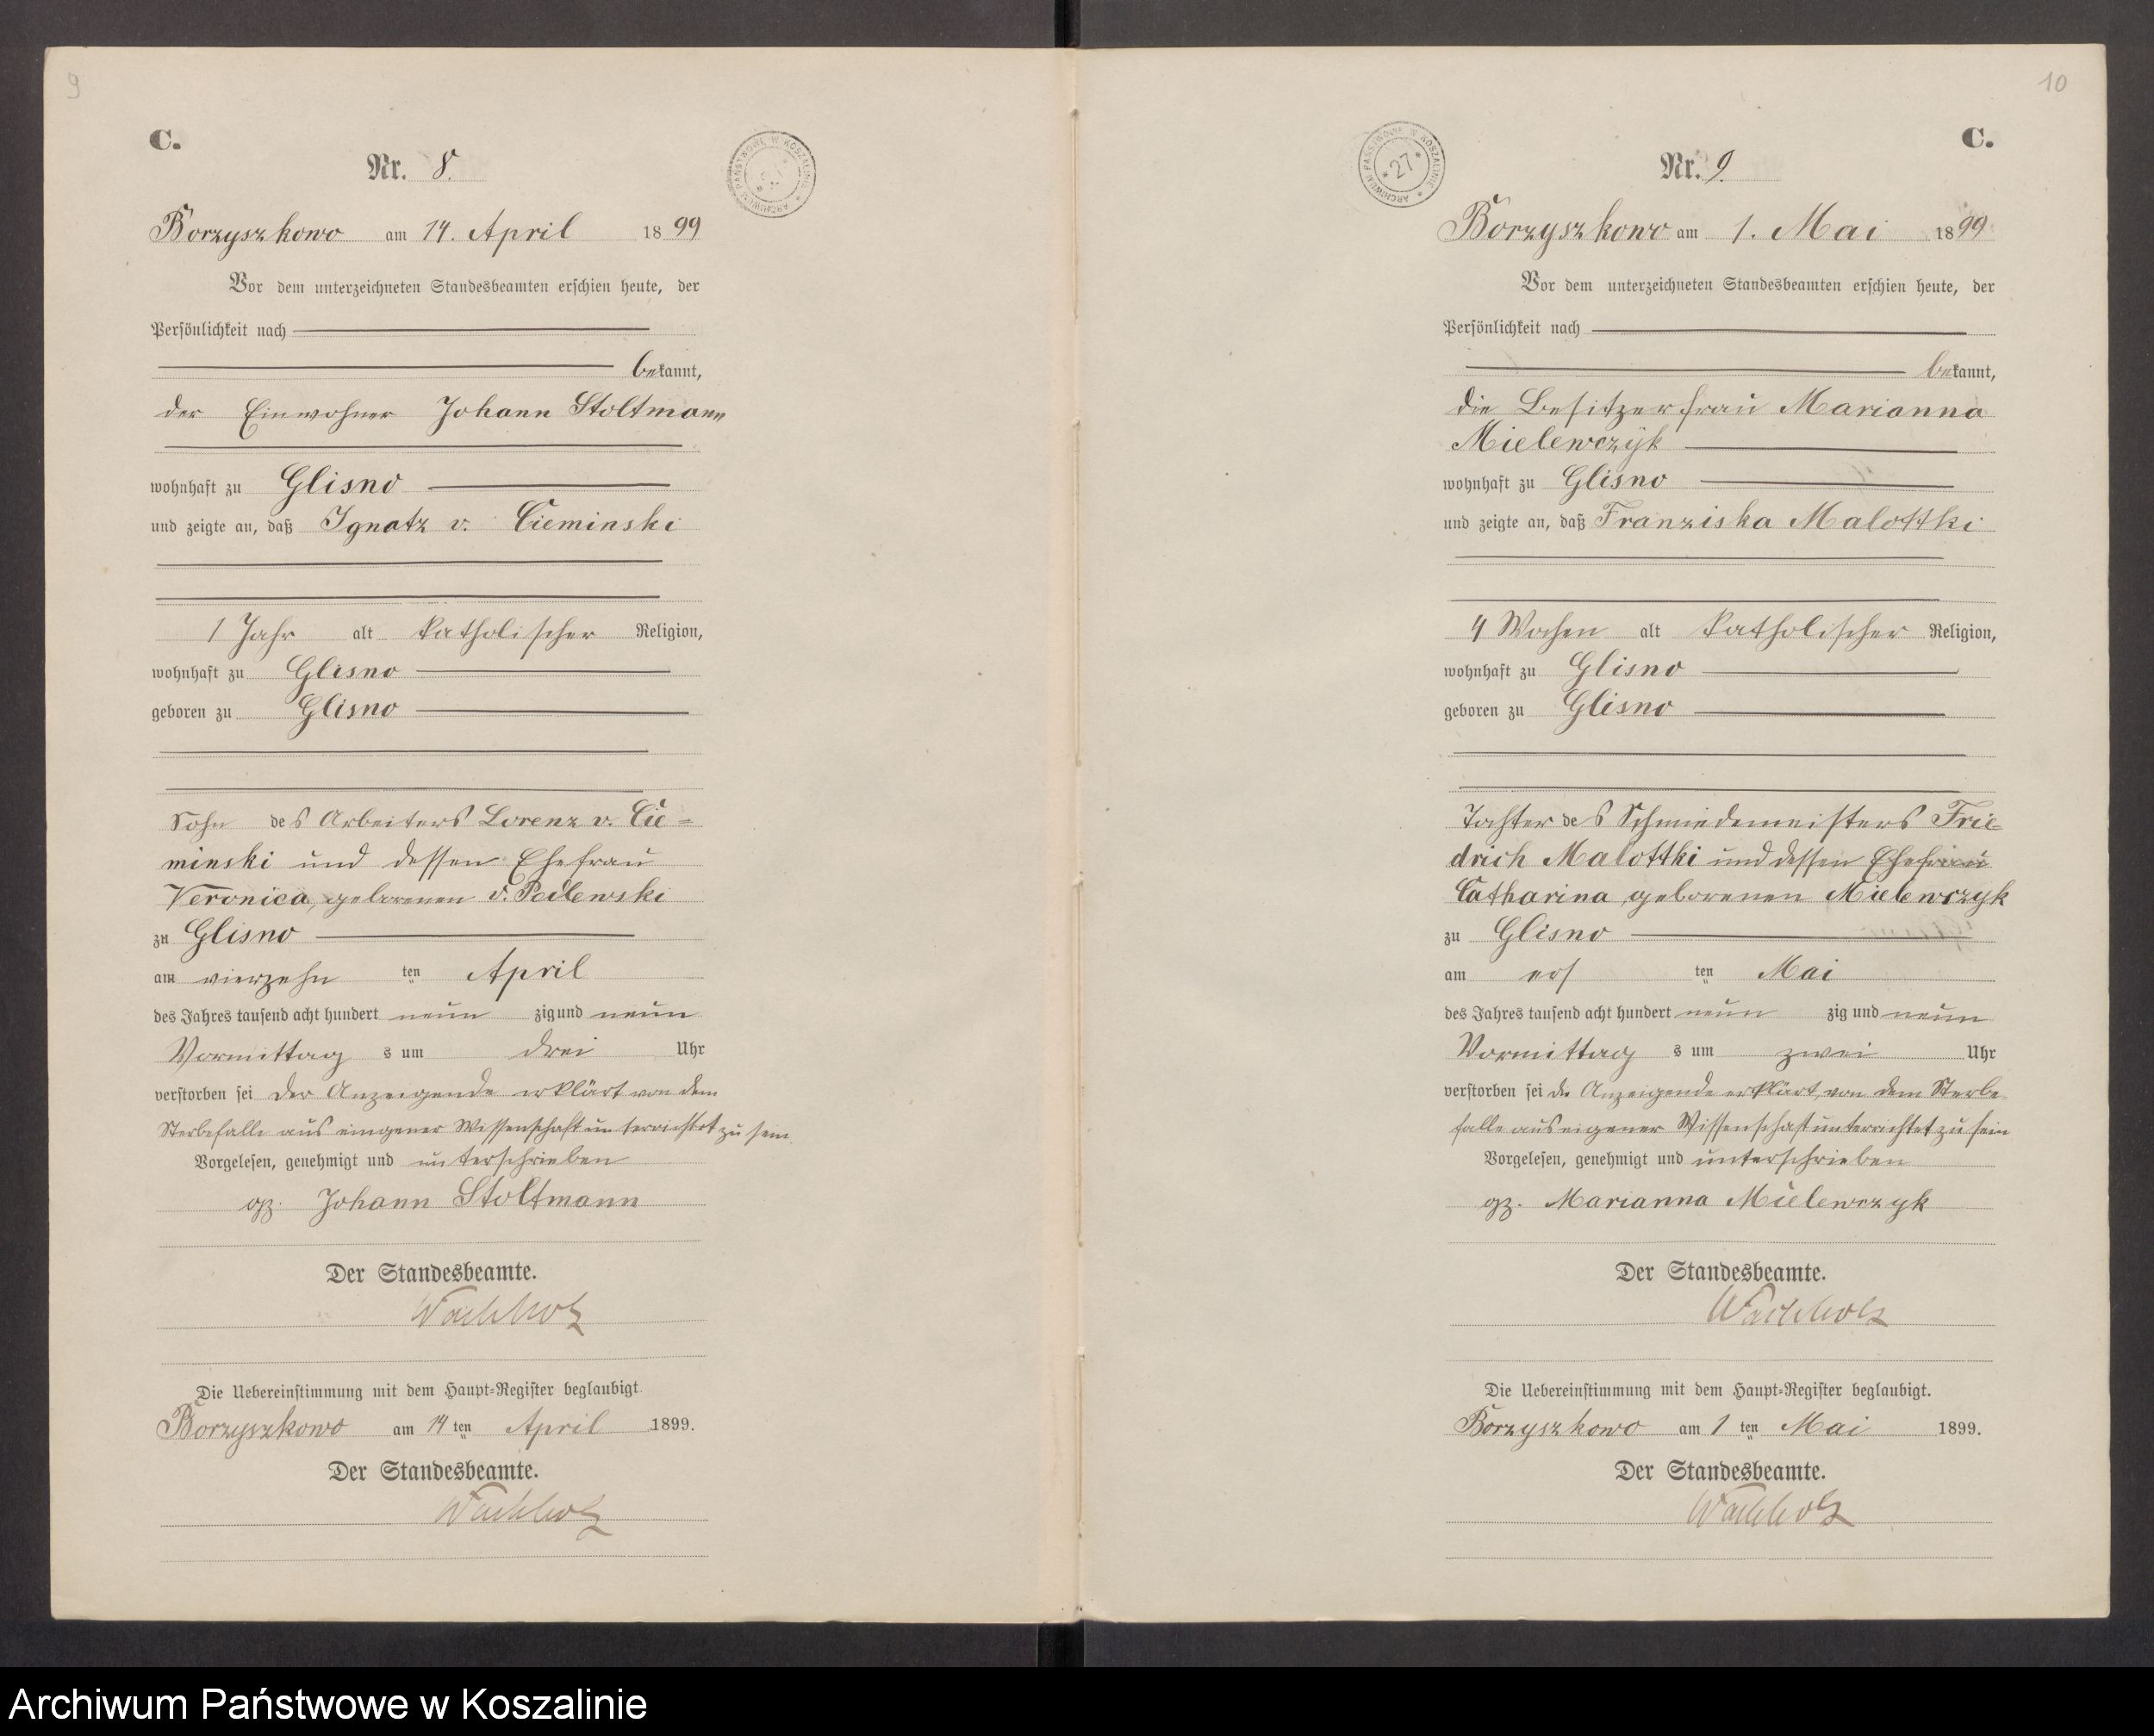 9
C.
Nr. 8.
ARCHIWUM PAŃSTWOWE W KOSZALINIE
Borzyszkowo am 14. April 1899
Vor dem unterzeichneten Standesbeamten erschien heute, der
Persönlichkeit nach
bekannt,
der Einwohner Johann Stoltmann
wohnhaft zu Glisno
und zeigte an, daß Ignatz v. Cieminski
1 Jahr alt katholischer Religion,
wohnhaft zu Glisno
geboren zu Glisno
Sohn des Arbeiters Lorenz v. Cie=
minski und dessen Ehefrau
Veronica, geborenen v.
zu Glisno
am vierzehn ten April
des Jahres tausend acht hundert neun zig und neun
Vormittag s um drei Uhr
verstorben sei der Anzeigende erklärt von dem
Sterbefalle aus eingener Wissenschaft unterrichtet zu sein.
Vorgelesen, genehmigt und unterschrieben
gz. Johann Stoltmann
Der Standesbeamte.
Wachholz
Die Uebereinstimmung mit dem Haupt=Register beglaubigt.
Borzyszkowo am 14 ten April 1899.
Der Standesbeamte.
Wachholz
10
C.
Nr. 9.
ARCHIWUM PAŃSTWOWE W KOSZALINIE
* 27 *
Borzyszkowo am 1. Mai 1899
Vor dem unterzeichneten Standesbeamten erschien heute, der
Persönlichkeit nach
bekannt,
die Besitzerfrau Marianna
Mielewczyk
wohnhaft zu Glisno
und zeigte an, daß Franziska Malottki
4 Wochen alt katholischer Religion,
wohnhaft zu Glisno
geboren zu Glisno
Tochter des Schmiedemeisters Frie=
drich Malottki und dessen Ehefrau
Catharina geborenen Mielewczyk
zu Glisno
am ers ten Mai
des Jahres tausend acht hundert neun zig und neun
Vormittag s um zwei Uhr
verstorben sei die Anzeigende erklärt, von dem Sterbe
falle aus eigener Wissenschaft unterrichtet zu sein
Vorgelesen, genehmigt und unterschrieben
gz. Marianna Mielewczyk
Der Standesbeamte.
Wachholz
Die Uebereinstimmung mit dem Haupt=Register beglaubigt.
Borzyszkowo am 1 ten Mai 1899.
Der Standesbeamte.
Wachholz
Archiwum Państwowe w Koszalinie